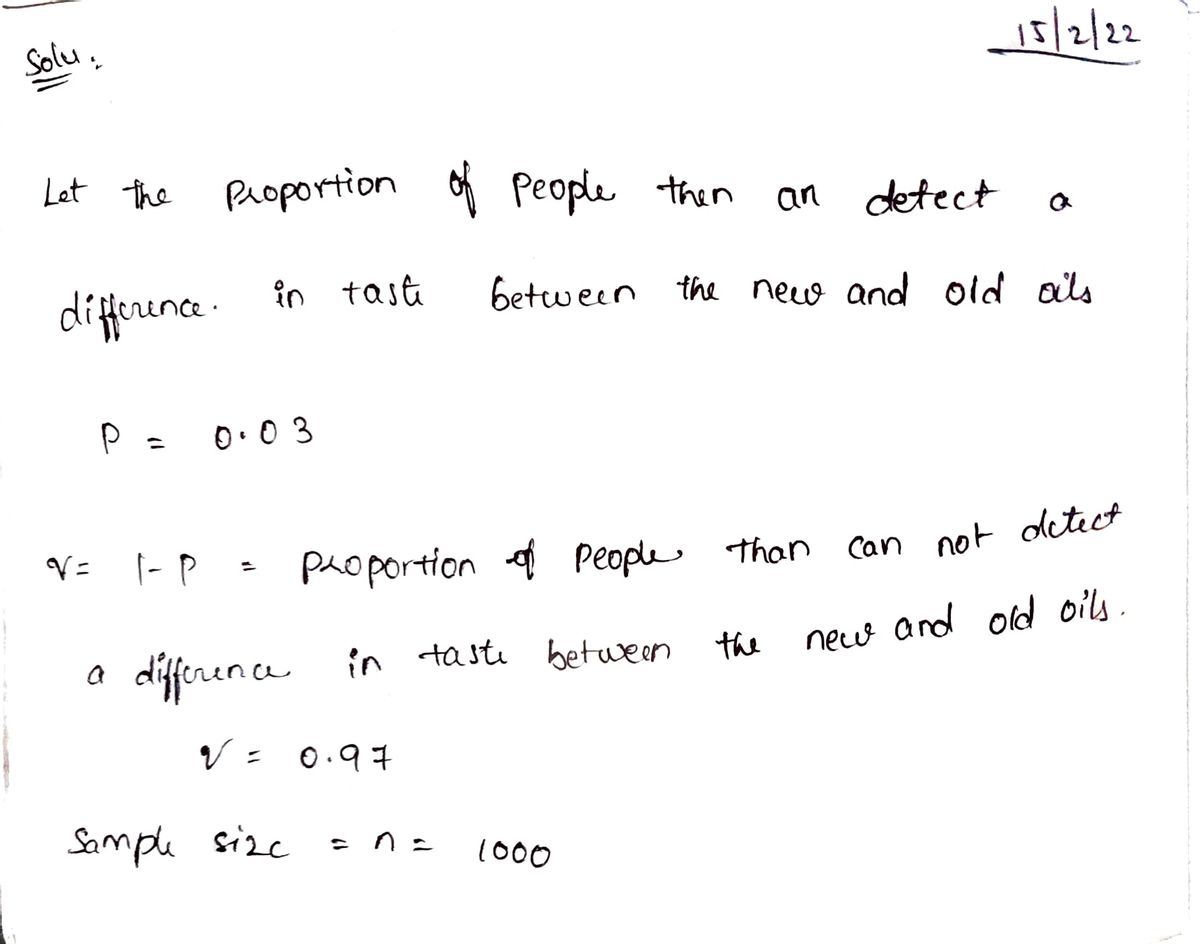 15/2/22
Solu:
Let the Proportion of People then an detect a
difference. in taste between the new and old oils
P = 0.03
q = 1-P = proportion of People than can not detect
a difference in taste between the new and old oils.
q = 0.97
Sample size = n = 1000